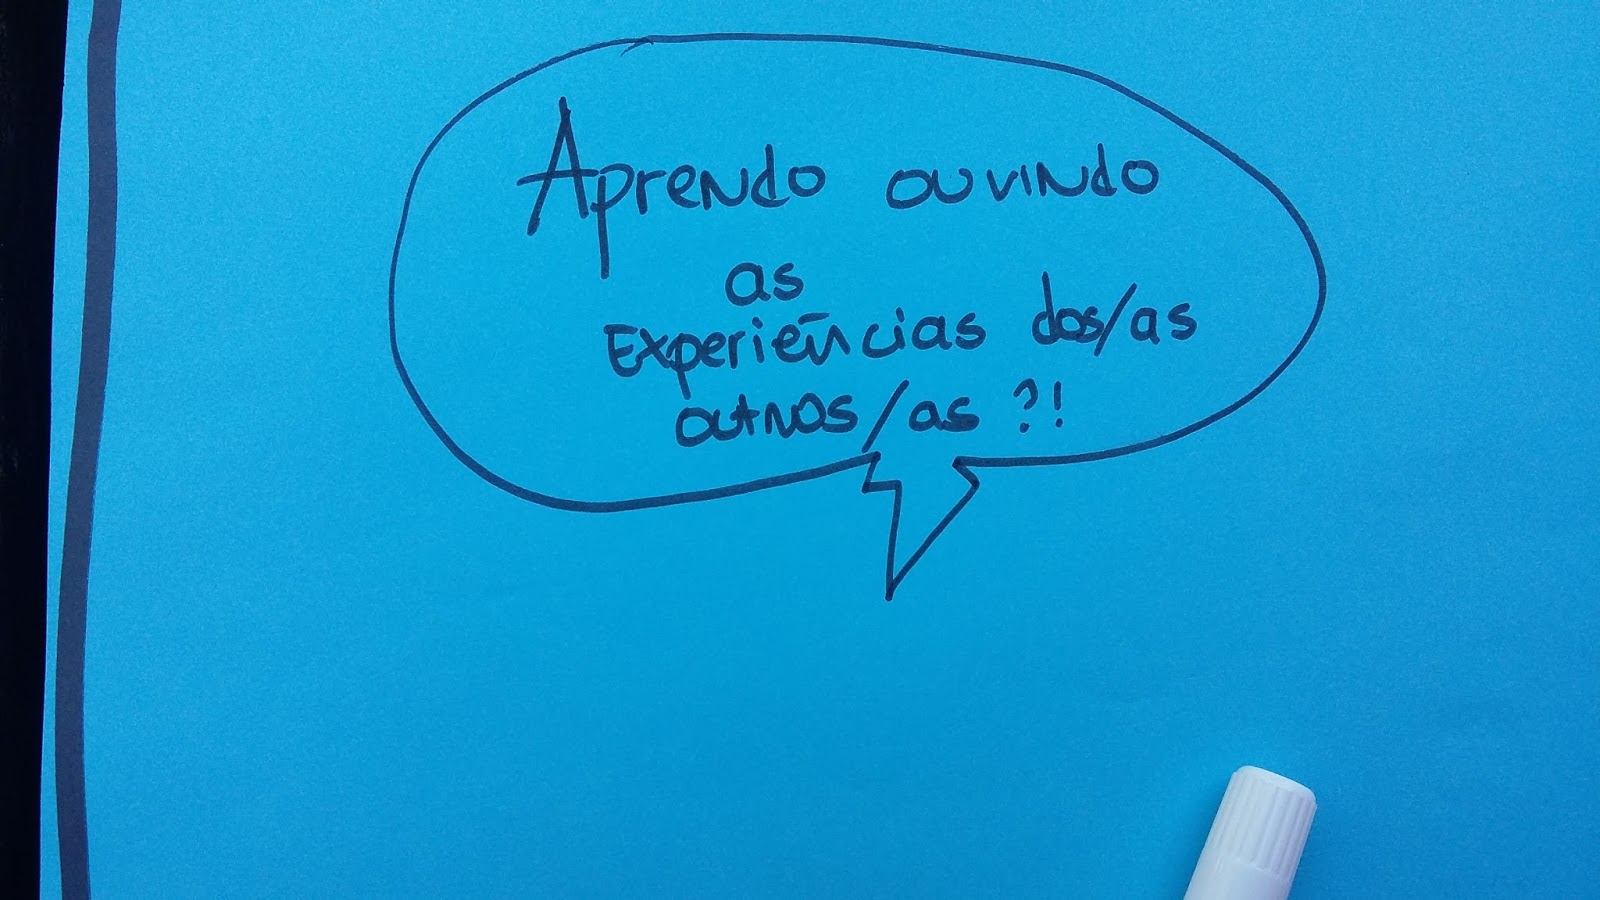 Aprendo ouvindo
as
Experiências dos/as
outros/as ?!